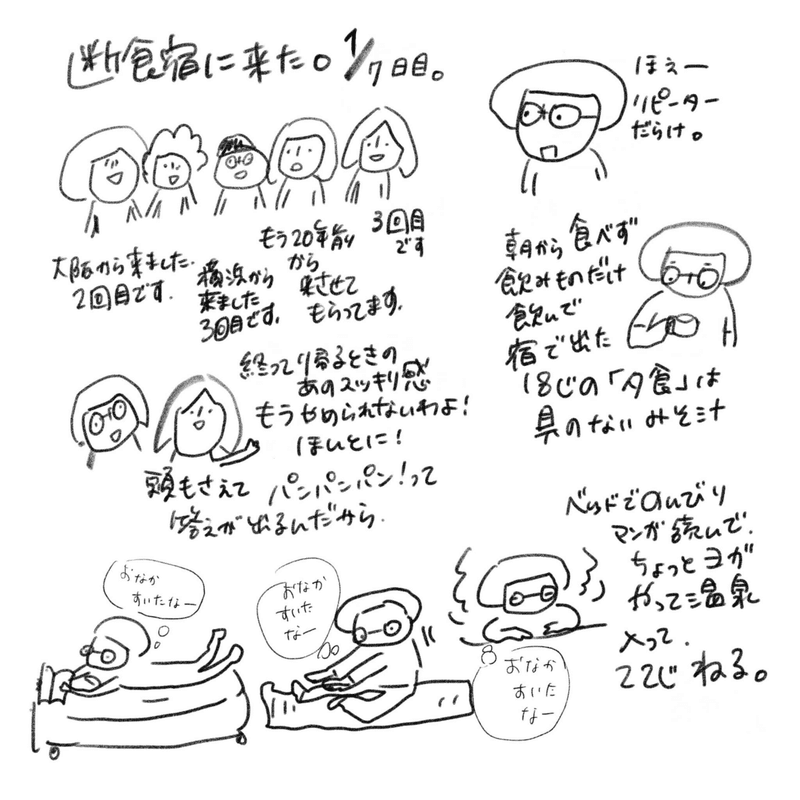 断食宿に来た。1/7日目。
大阪から来ました.
2回目です.
横浜から
来ました
3回目です.
もう20年前
から
来させて
もらってます.
3回目
です
ほぇー
リピーター
だらけ。
終って帰るときの
あのスッキリ感
もうやめられないわよ!
ほんとに!
頭もさえて パンパンパン!って
答えが出るんだから.
朝から食べず
飲みものだけ
飲んで
宿で出た
18じの「夕食」は
具のないみそ汁
おなか
すいたなー
おなか
すいた
なー
おなか
すいた
なー
ベッドでのんびり
マンガ読んで.
ちょっとヨガ
やって温泉
入って.
22じねる。